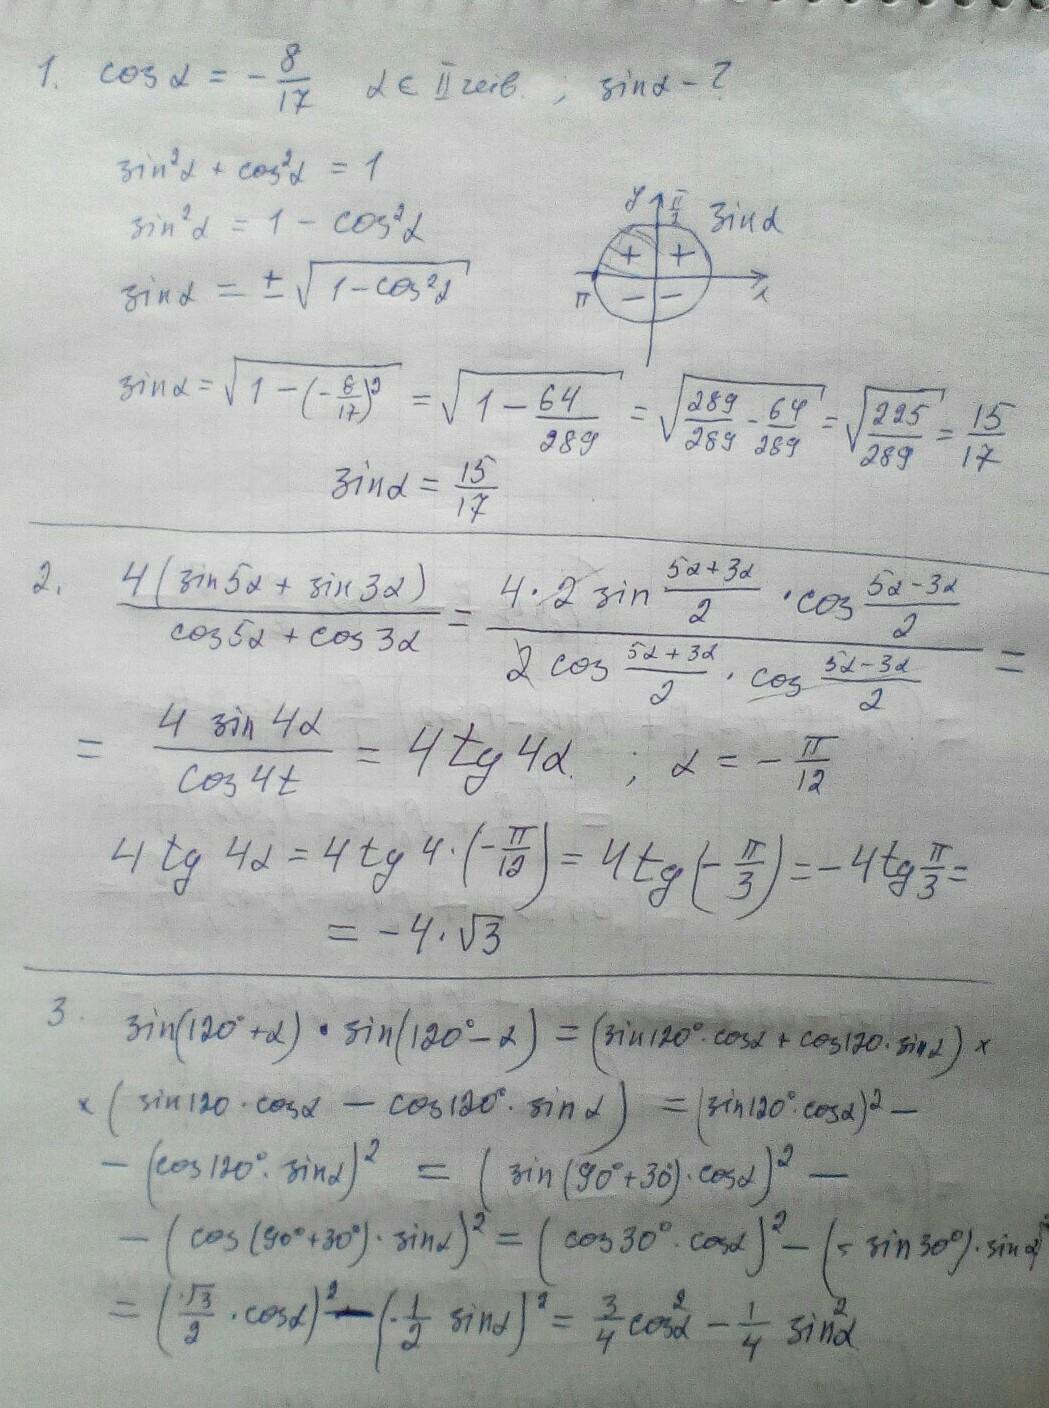 1. cos α = - 8/17 α ∈ II четв. ; sin α - ?
sin²α + cos²α = 1
sin²α = 1 - cos²α
y π/2 sin α
sin α = ± √(1 - cos²α)
+ +
π - - x
sin α = √(1 - (-8/17)²) = √(1 - 64/289) = √(289/289 - 64/289) = √(225/289) = 15/17
sin α = 15/17
2. 4(sin 5α + sin 3α)/(cos 5α + cos 3α) = (4 · 2 sin (5α + 3α)/2 · cos (5α - 3α)/2)/(2 cos (5α + 3α)/2 · cos (5α - 3α)/2) =
= 4 sin 4α/cos 4t = 4 tg 4α ; α = - π/12
4 tg 4α = 4 tg 4 · (- π/12) = 4 tg (- π/3) = - 4 tg π/3 =
= - 4 · √3
3. sin(120° + α) · sin(120° - α) = (sin 120° · cos α + cos 120 · sin α) ×
× (sin 120 · cos α - cos 120° · sin α) = (sin 120° · cos α)² -
- (cos 120° · sin α)² = (sin (90° + 30°) · cos α)² -
- (cos (90° + 30°) · sin α)² = (cos 30° · cos α)² - (- sin 30°) · sin α)²
= (√3/2 · cos α)² - (- 1/2 sin α)² = 3/4 cos²α - 1/4 sin²α